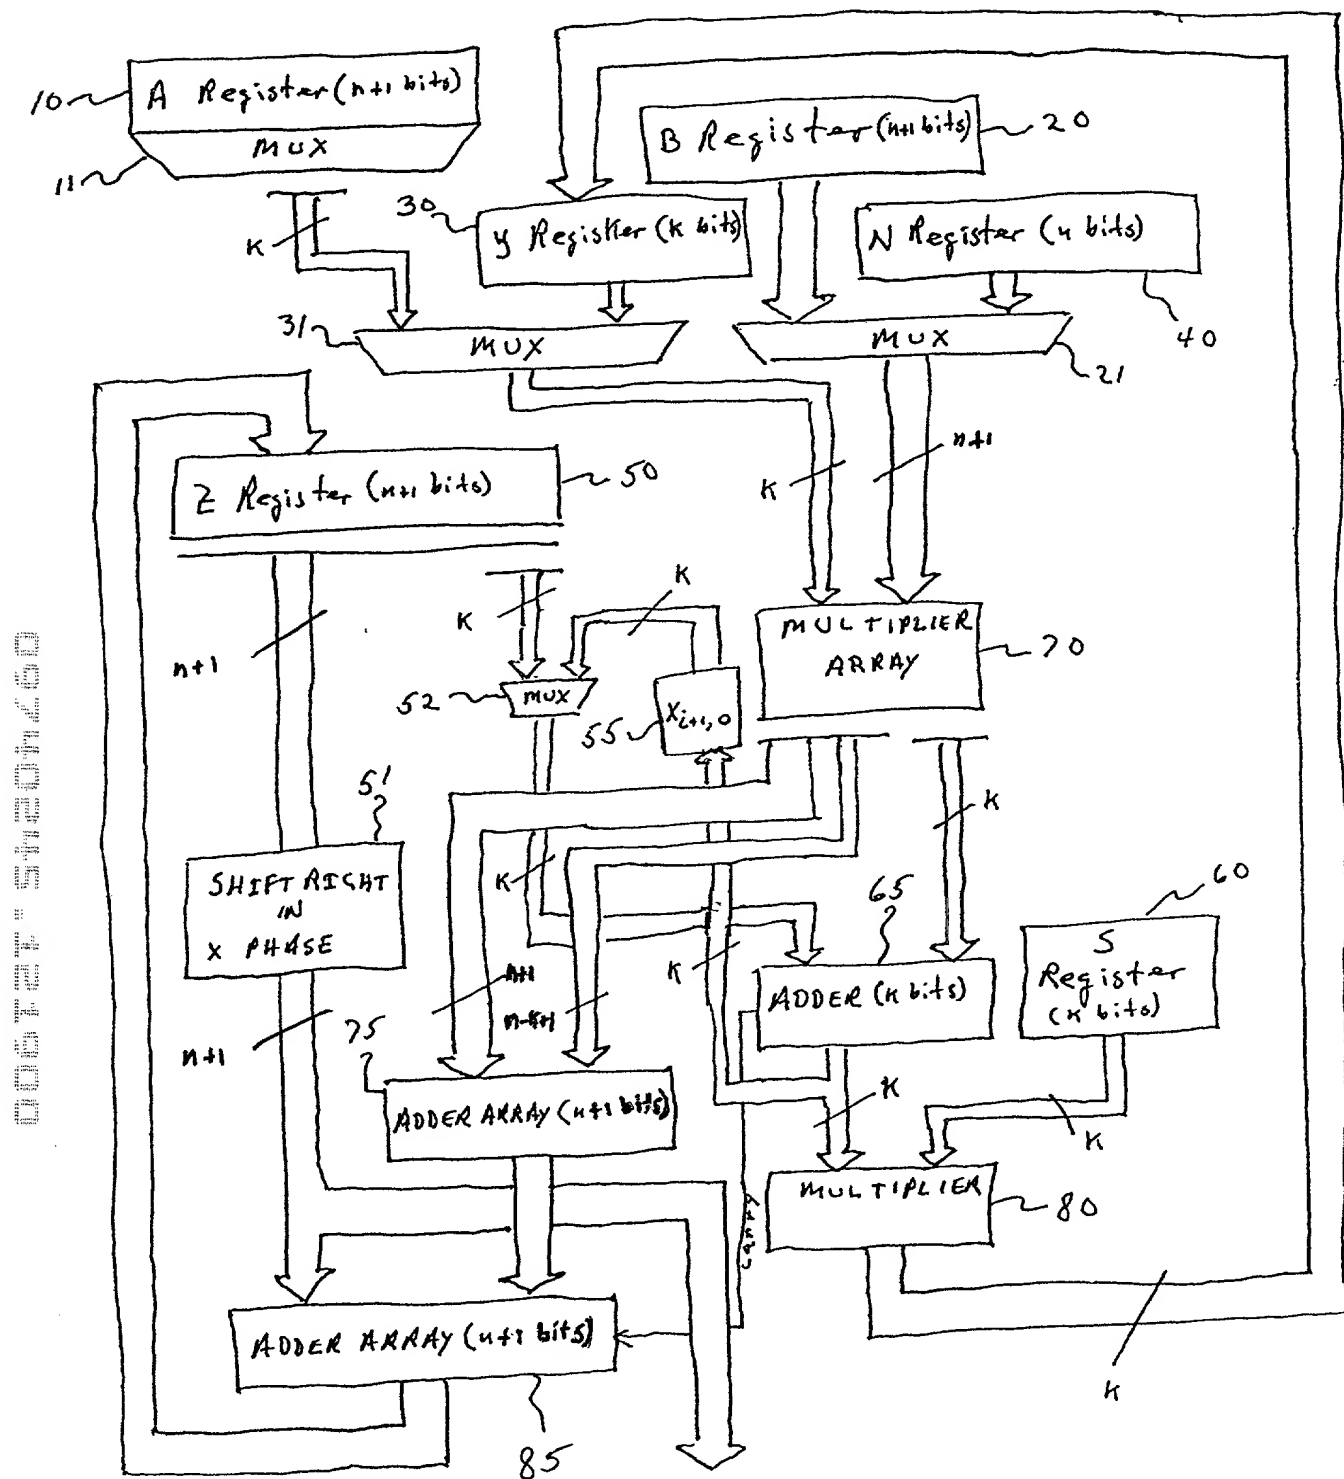 10
A Register (n+1 bits)
MUX
11
K
B Register (n+1 bits)
20
30
Y Register (k bits)
N Register (n bits)
40
31
MUX
MUX
21
K
n+1
Z Register (n+1 bits)
50
n+1
K
K
MULTIPLIER
ARRAY
70
52
MUX
55
X i+1,0
51
SHIFT RIGHT
IN
X PHASE
K
K
K
65
ADDER (K bits)
60
S
Register
(K bits)
n+1
n+1
n-k+1
75
ADDER ARRAY (n+1 bits)
K
K
MULTIPLIER
80
carry
ADDER ARRAY (n+1 bits)
85
K